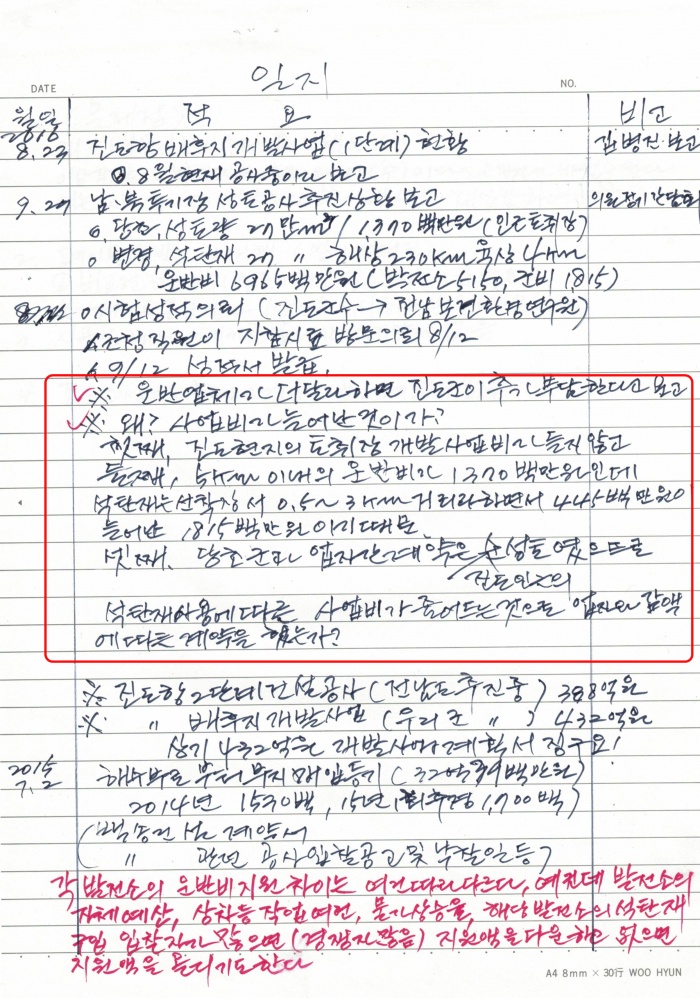 일지
DATE NO.
월일 적요 비고
2018
8.23 진도항 배후지 개발사업(1단계) 현황 김병진 보고
0. 8월현재 공사중이라 보고
9. 20 남·북투기장 성토공사 추진상황 보고 의원정기간담회
o. 당초, 성토량 27만㎥ / 1,370백만원 (인근토취장)
o 변경, 석탄재 27 〃 해상 230km 육상 4km
운반비 6965백만원 (발전소 5150, 군비 1,815)
o시험성적의뢰 (진도군수→전남보건환경연구원)
직원이 지참시료 방문의뢰 8/12
9/12 성적서 발급.
※ 운반업체가 더달라하면 진도군이 추가부담한다고 보고
※ 왜? 사업비가 늘어난것이가?
첫째, 진도현지의 토취장 개발사업비가 들지않고
둘째, 5km 이내의 운반비가 1370백만원인데
석탄재는 선착장서 0.5~3km거리라하면서 445백만원이
늘어난 1,815백만원이기때문
셋째. 당초군과 업자간계약은 순성토였으므로
진도인근의
석탄재사용에따른 사업비가 줄어드는것으로 업자와 감액
에따른 계약을 했는가?
※ 진도항2단계건설공사 (전남도추진중) 388억원
※ 〃 배후지개발사업 (우리군 〃 ) 432억원
상기 432억원 개발사업계획서 징구요!
2015
7.2 해수부로부터 부지매입등기 (32억39백만원)
2014년 1530백, 15년, 1,700백)
(백송건설 계약서
( 〃 관련 공사입찰공고및 낙찰일등)
각 발전소의 운반비지원 차이는 여건따라다른다, 예컨데 발전소의
자체예상, 상차등 작업여건, 물가상승율, 해당발전소의석탄재
구입 입찰자가 많으면 (경쟁자많음) 지원액을 다운하고 없으면
지원액을 올리기도한다
A4 8mm × 30行 WOO HYUN